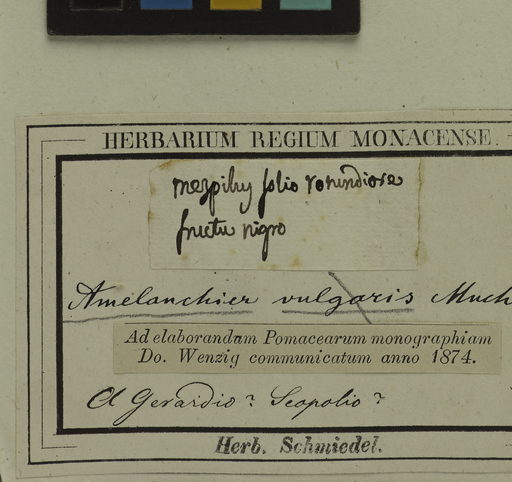 HERBARIUM REGIUM MONACENSE.
mespilus folio rotundiore
fructu nigro
Amelanchier vulgaris Mnch
Ad elaborandam Pomacearum monographiam
Do. Wenzig communicatum anno 1874.
A Gerardio? Scopolio?
Herb. Schmiedel.